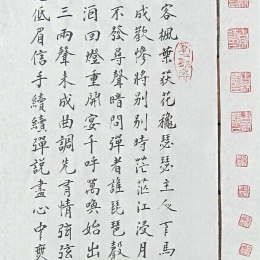 客楓葉荻花穐瑟瑟主人下馬
成歡慘將别别時茫茫江浸月
不發尋聲暗問彈者誰琵琶聲
酒回燈重開宴千呼萬喚始出
三兩聲未成曲調先有情弦弦
低眉信手續續彈説盡心中無